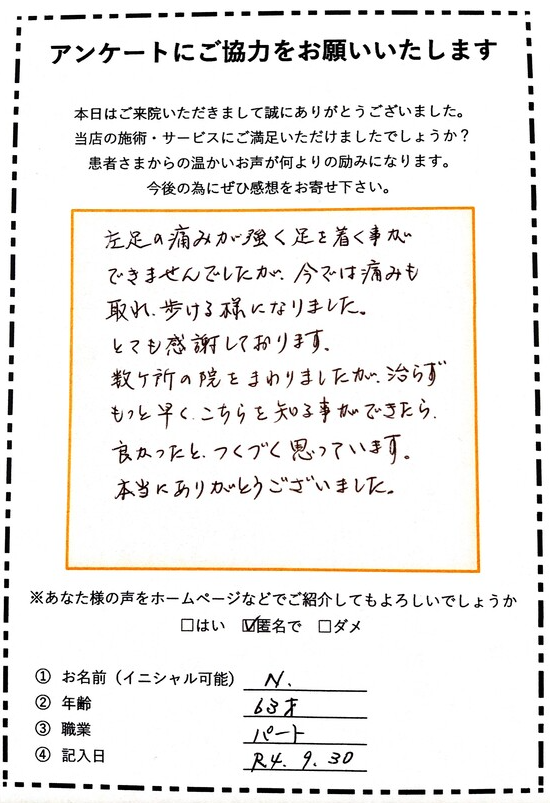 アンケートにご協力をお願いいたします
本日はご来院いただきまして誠にありがとうございました。
当店の施術・サービスにご満足いただけましたでしょうか?
患者さまからの温かいお声が何よりの励みになります。
今後の為にぜひ感想をお寄せ下さい。
左足の痛みが強く足を着く事が
できませんでしたが、今では痛みも
取れ、歩ける様になりました。
とても感謝しております。
数ケ所の院をまわりましたが、治らず
もっと早く、こちらを知る事ができたら、
良かったと、つくづく思っています。
本当にありがとうございました。
※あなた様の声をホームページなどでご紹介してもよろしいでしょうか
□はい ☑匿名で □ダメ
① お名前(イニシャル可能) N.
② 年齢 63才
③ 職業 パート
④ 記入日 R4. 9. 30